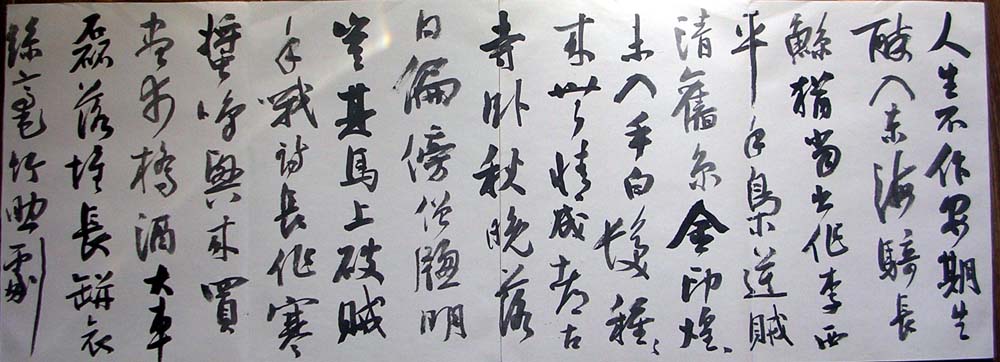 人生不作安期生
醉入東海騎長
鯨猶當出作李西
平手梟逆賊
清舊京金印煌、
未入手白髮種、
來無情成都古
寺臥秋晚落
日偏傍僧牕明
豈其馬上破賊
手哦詩長作寒
螿鳴興來買
盡市橋酒大車
磊落堆長缾哀
絲豪竹助劇